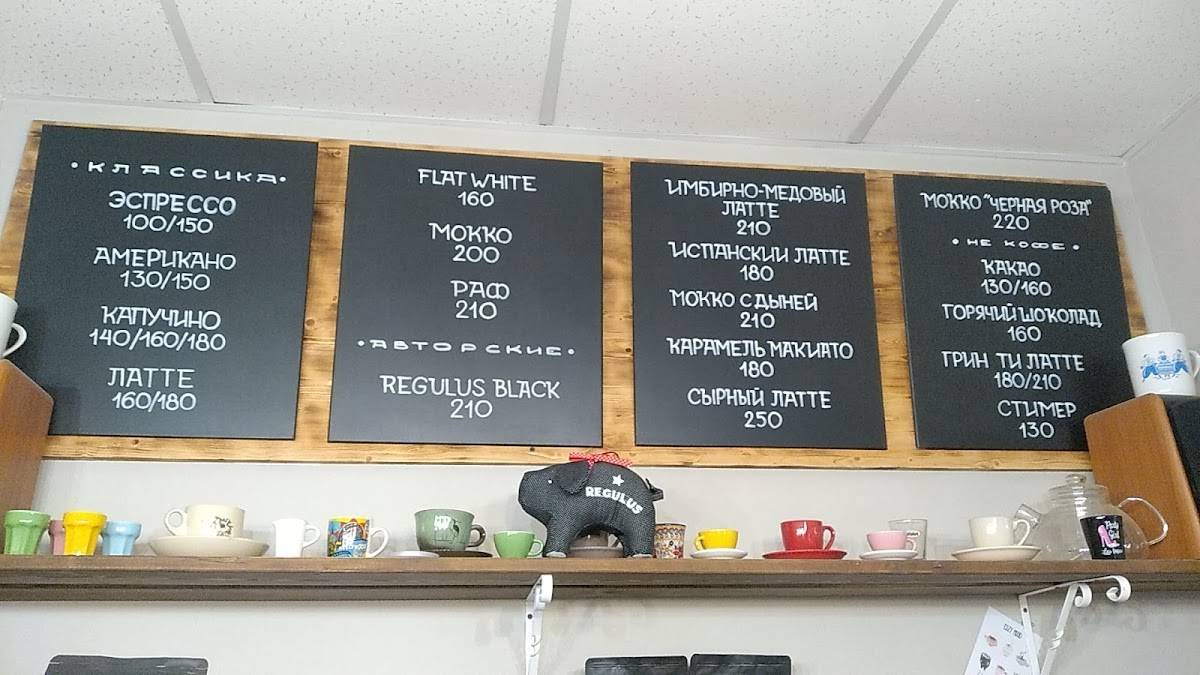 •КЛАССИКА•
ЭСПРЕССО
100/150
АМЕРИКАНО
130/150
КАПУЧИНО
140/160/180
ЛАТТЕ
160/180
FLAT WHITE
160
МОККО
200
РАФ
210
•АВТОРСКИЕ•
REGULUS BLACK
210
ИМБИРНО-МЕДОВЫЙ
ЛАТТЕ
210
ИСПАНСКИЙ ЛАТТЕ
180
МОККО С ДЫНЕЙ
210
КАРАМЕЛЬ МАКИАТО
180
СЫРНЫЙ ЛАТТЕ
250
МОККО "ЧЕРНАЯ РОЗА"
220
•НЕ КОФЕ•
КАКАО
130/160
ГОРЯЧИЙ ШОКОЛАД
160
ГРИН ТИ ЛАТТЕ
180/210
СТИМЕР
130
REGULUS